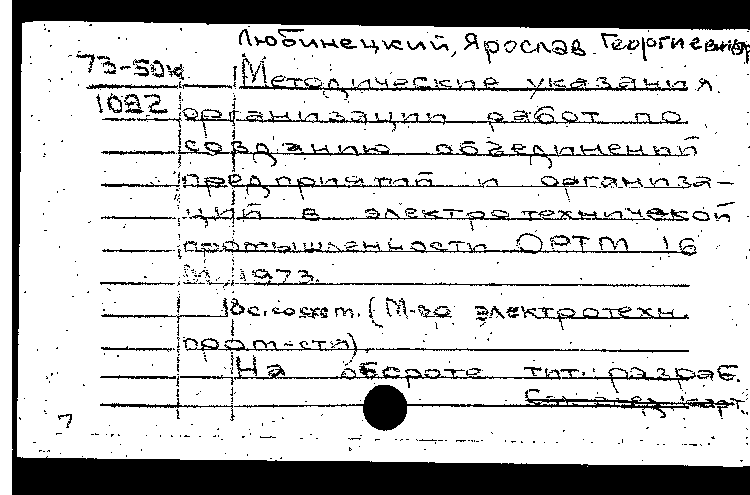 Любинецкий, Ярослав Георгиевич
73-50к
Методические указания
1092
организации работ по
созданию объединений
предприятий и организа-
ций в электротехнической
промышленности ОРТМ 16
М., 1973.
18с. сост. (М-во электротехн.
пром-сти).
На обороте тит.: разраб.
карт.
7